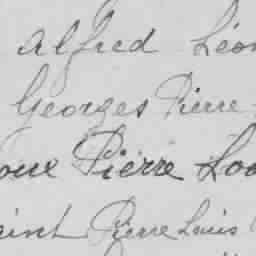 Alfred Léon
Georges Pierre
Pierre
Pierre Louis